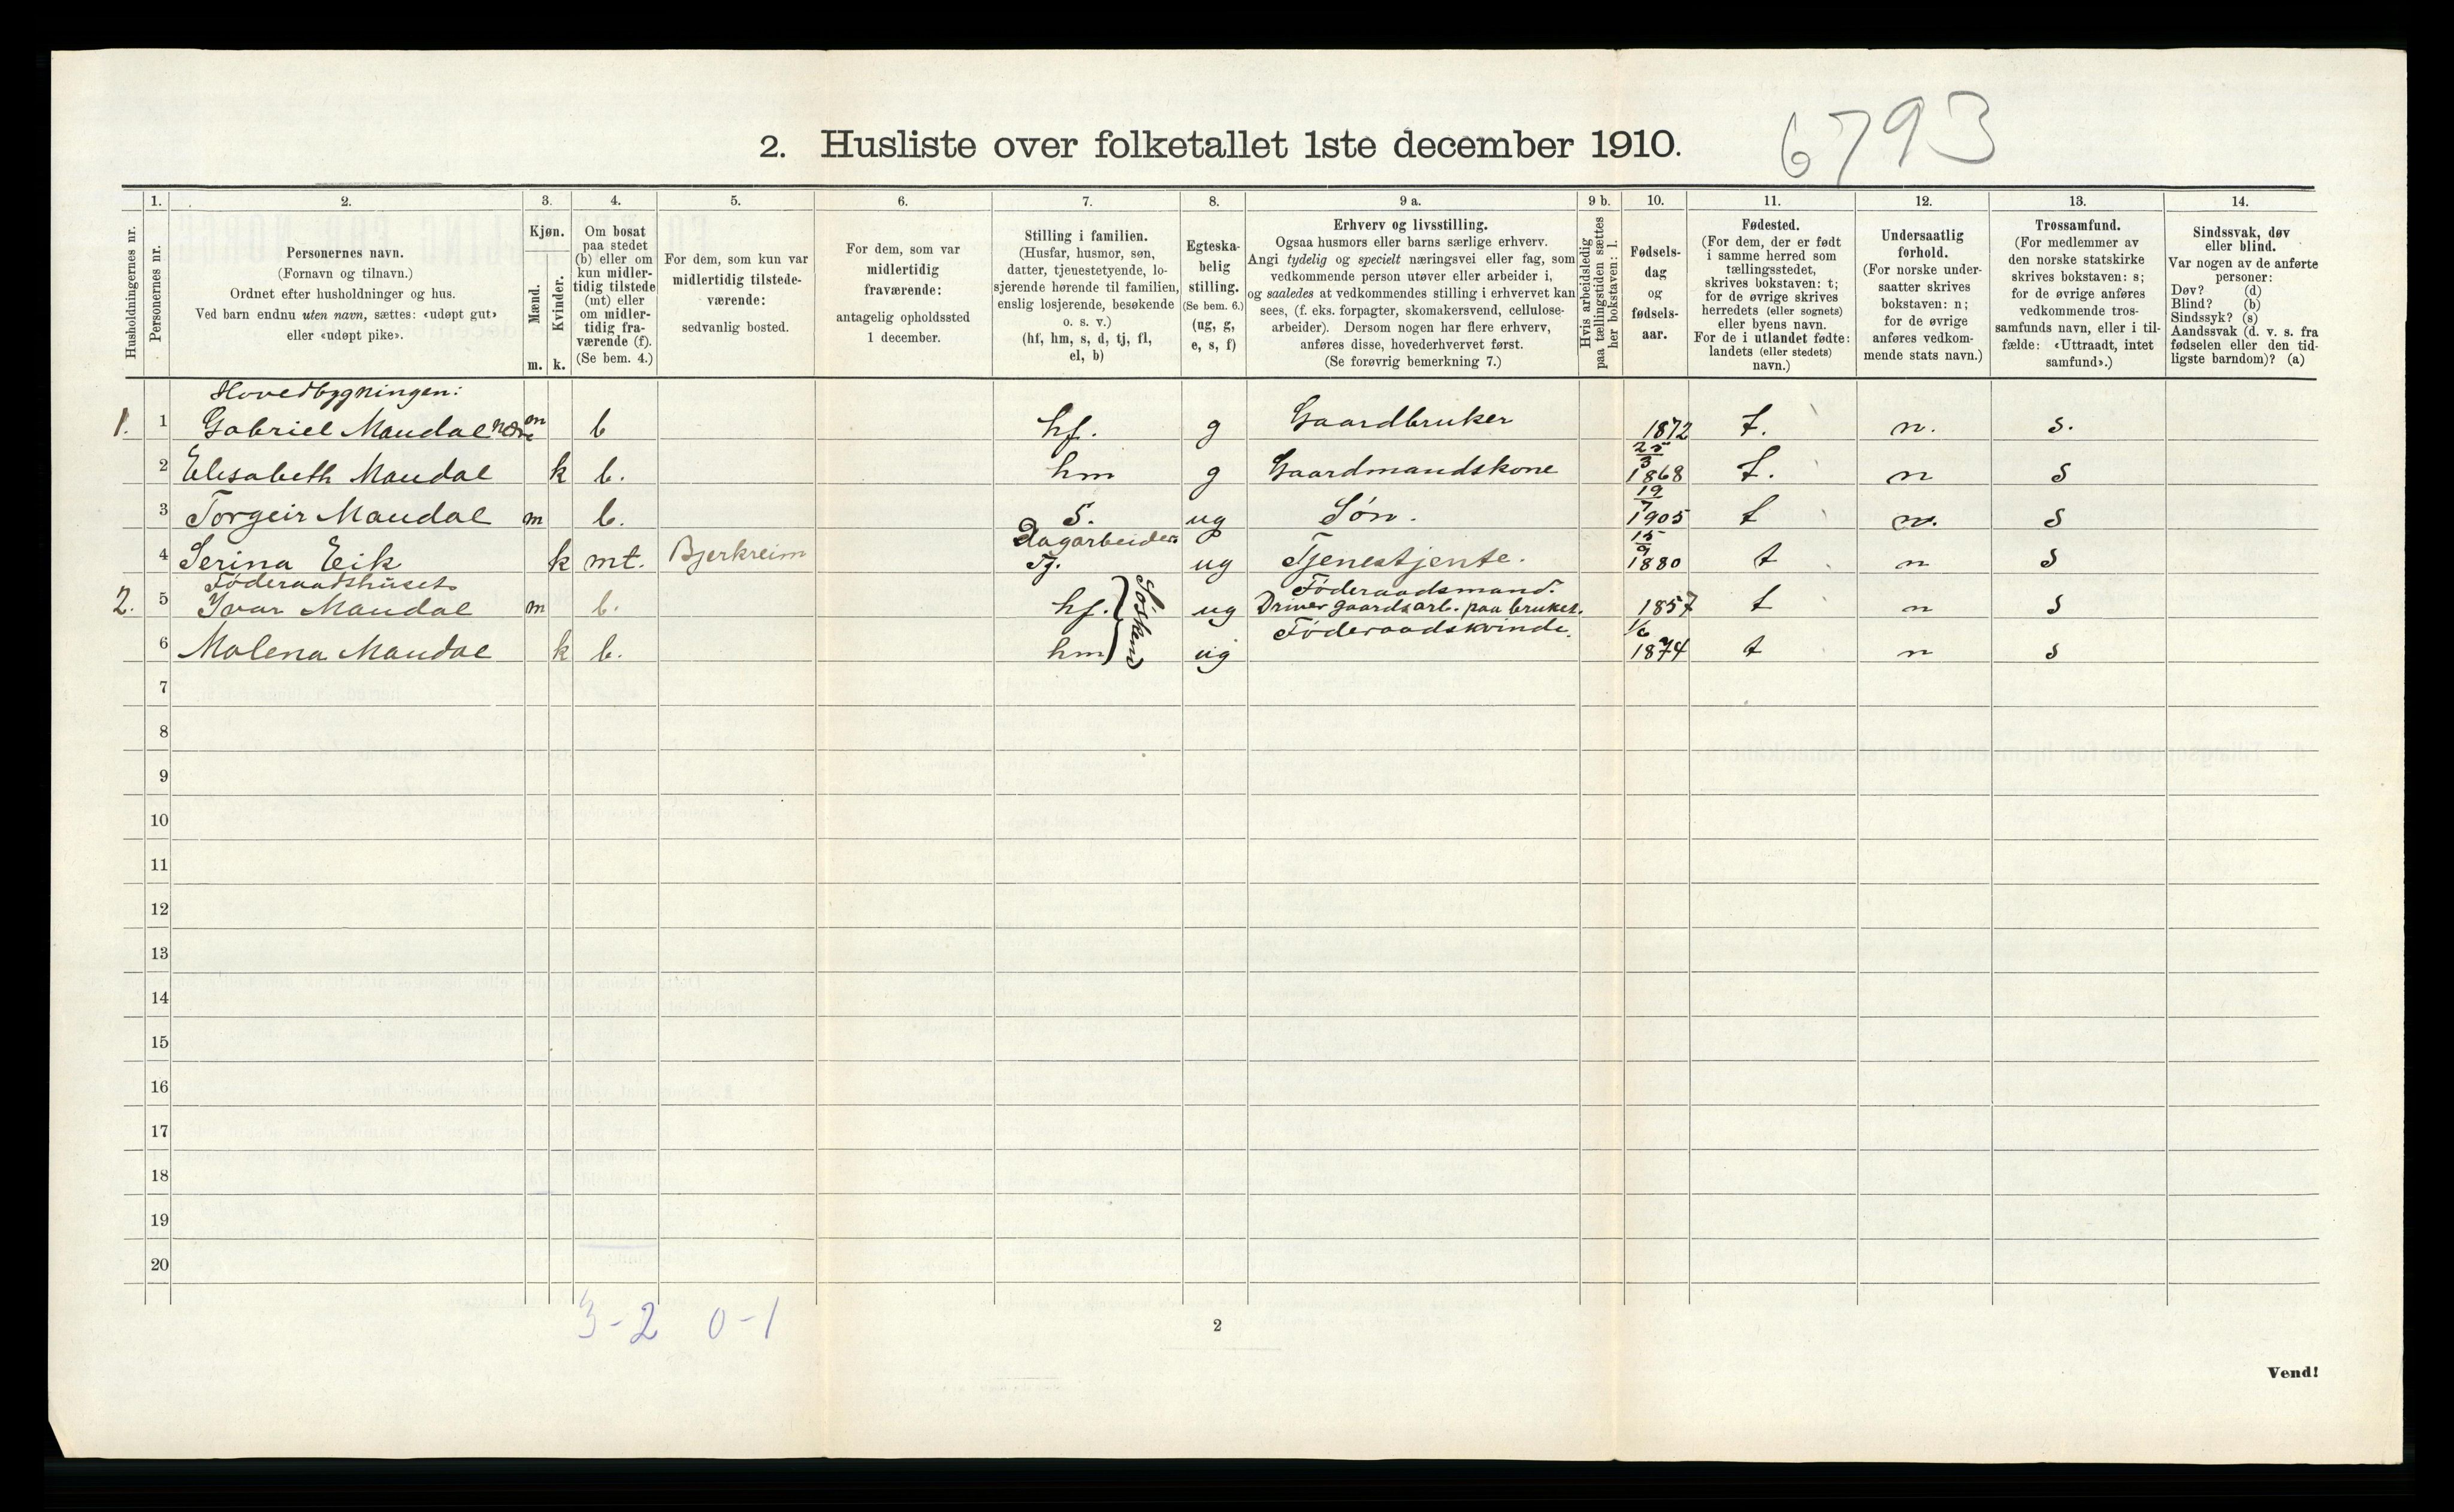 6793
2. Husliste over folketallet 1ste december 1910.
Husholdningernes nr.
1.
Personernes nr.
2.
Personernes navn.
(Fornavn og tilnavn.)
Ordnet efter husholdninger og hus.
Ved barn endnu uten navn, sættes: «udøpt gut»
eller «udøpt pike».
3.
Kjøn.
Mænd.
Kvinder.
m. k.
4.
Om bosat
paa stedet
(b) eller om
kun midler-
tidig tilstede
(mt) eller
om midler-
tidig fra-
værende (f).
(Se bem. 4.)
5.
For dem, som kun var
midlertidig tilstede-
værende:
sedvanlig bosted.
6.
For dem, som var
midlertidig
fraværende:
antagelig opholdssted
1 december.
7.
Stilling i familien.
(Husfar, husmor, søn,
datter, tjenestetyende, lo-
sjerende hørende til familien,
enslig losjerende, besøkende
o. s. v.)
(hf, hm, s, d, tj, fl,
el, b)
8.
Egteska-
belig
stilling.
(Se bem. 6.)
(ug, g,
e, s, f)
9 a.
Erhverv og livsstilling.
Ogsaa husmors eller barns særlige erhverv.
Angi tydelig og specielt næringsvei eller fag, som
vedkommende person utøver eller arbeider i,
og saaledes at vedkommendes stilling i erhvervet kan
sees, (f. eks. forpagter, skomakersvend, cellulose-
arbeider). Dersom nogen har flere erhverv,
anføres disse, hovederhvervet først.
(Se forøvrig bemerkning 7.)
9 b.
Hvis arbeidsledig
paa tællingstiden sættes
her bokstaven: l.
10.
Fødsels-
dag
og
fødsels-
aar.
11.
Fødested.
(For dem, der er født
i samme herred som
tællingsstedet,
skrives bokstaven: t;
for de øvrige skrives
herredets (eller sognets)
eller byens navn.
For de i utlandet fødte:
landets (eller stedets)
navn.)
12.
Undersaatlig
forhold.
(For norske under-
saatter skrives
bokstaven: n;
for de øvrige
anføres vedkom-
mende stats navn.)
13.
Trossamfund.
(For medlemmer av
den norske statskirke
skrives bokstaven: s;
for de øvrige anføres
vedkommende tros-
samfunds navn, eller i til-
fælde: «Uttraadt, intet
samfund».)
14.
Sindssvak, døv
eller blind.
Var nogen av de anførte
personer:
Døv? (d)
Blind? (b)
Sindssyk? (s)
Aandssvak (d. v. s. fra
fødselen eller den tid-
ligste barndom)? (a)
Hovedbygningen:
1. 1 Gabriel Maudal nedre m b hf. g Gaardbruker 1872 t. n. s.
2 Elisabeth Maudal k b. hm g Gaardmandskone 25/3 1868 t. n s
3 Torgeir Maudal m b. S. ug Søn. 19/7 1905 t n. s
Dagarbeider
4 Serina Eik k mt. Bjerkreim Tj. ug Tjenestjente. 15/9 1880 t n s
Föderaadshuset Föderaadsmand.
2. 5 Ivar Maudal m b. hf. ug Driver gaardsarb. paa bruket. 1857 t n s
Söskend
6 Malena Maudal k b. hm ug Föderaadskvinde. 1/6 1874 t n s
7
8
9
10
11
12
13
14
15
16
17
18
19
20
3-2 0-1
2
Vend!